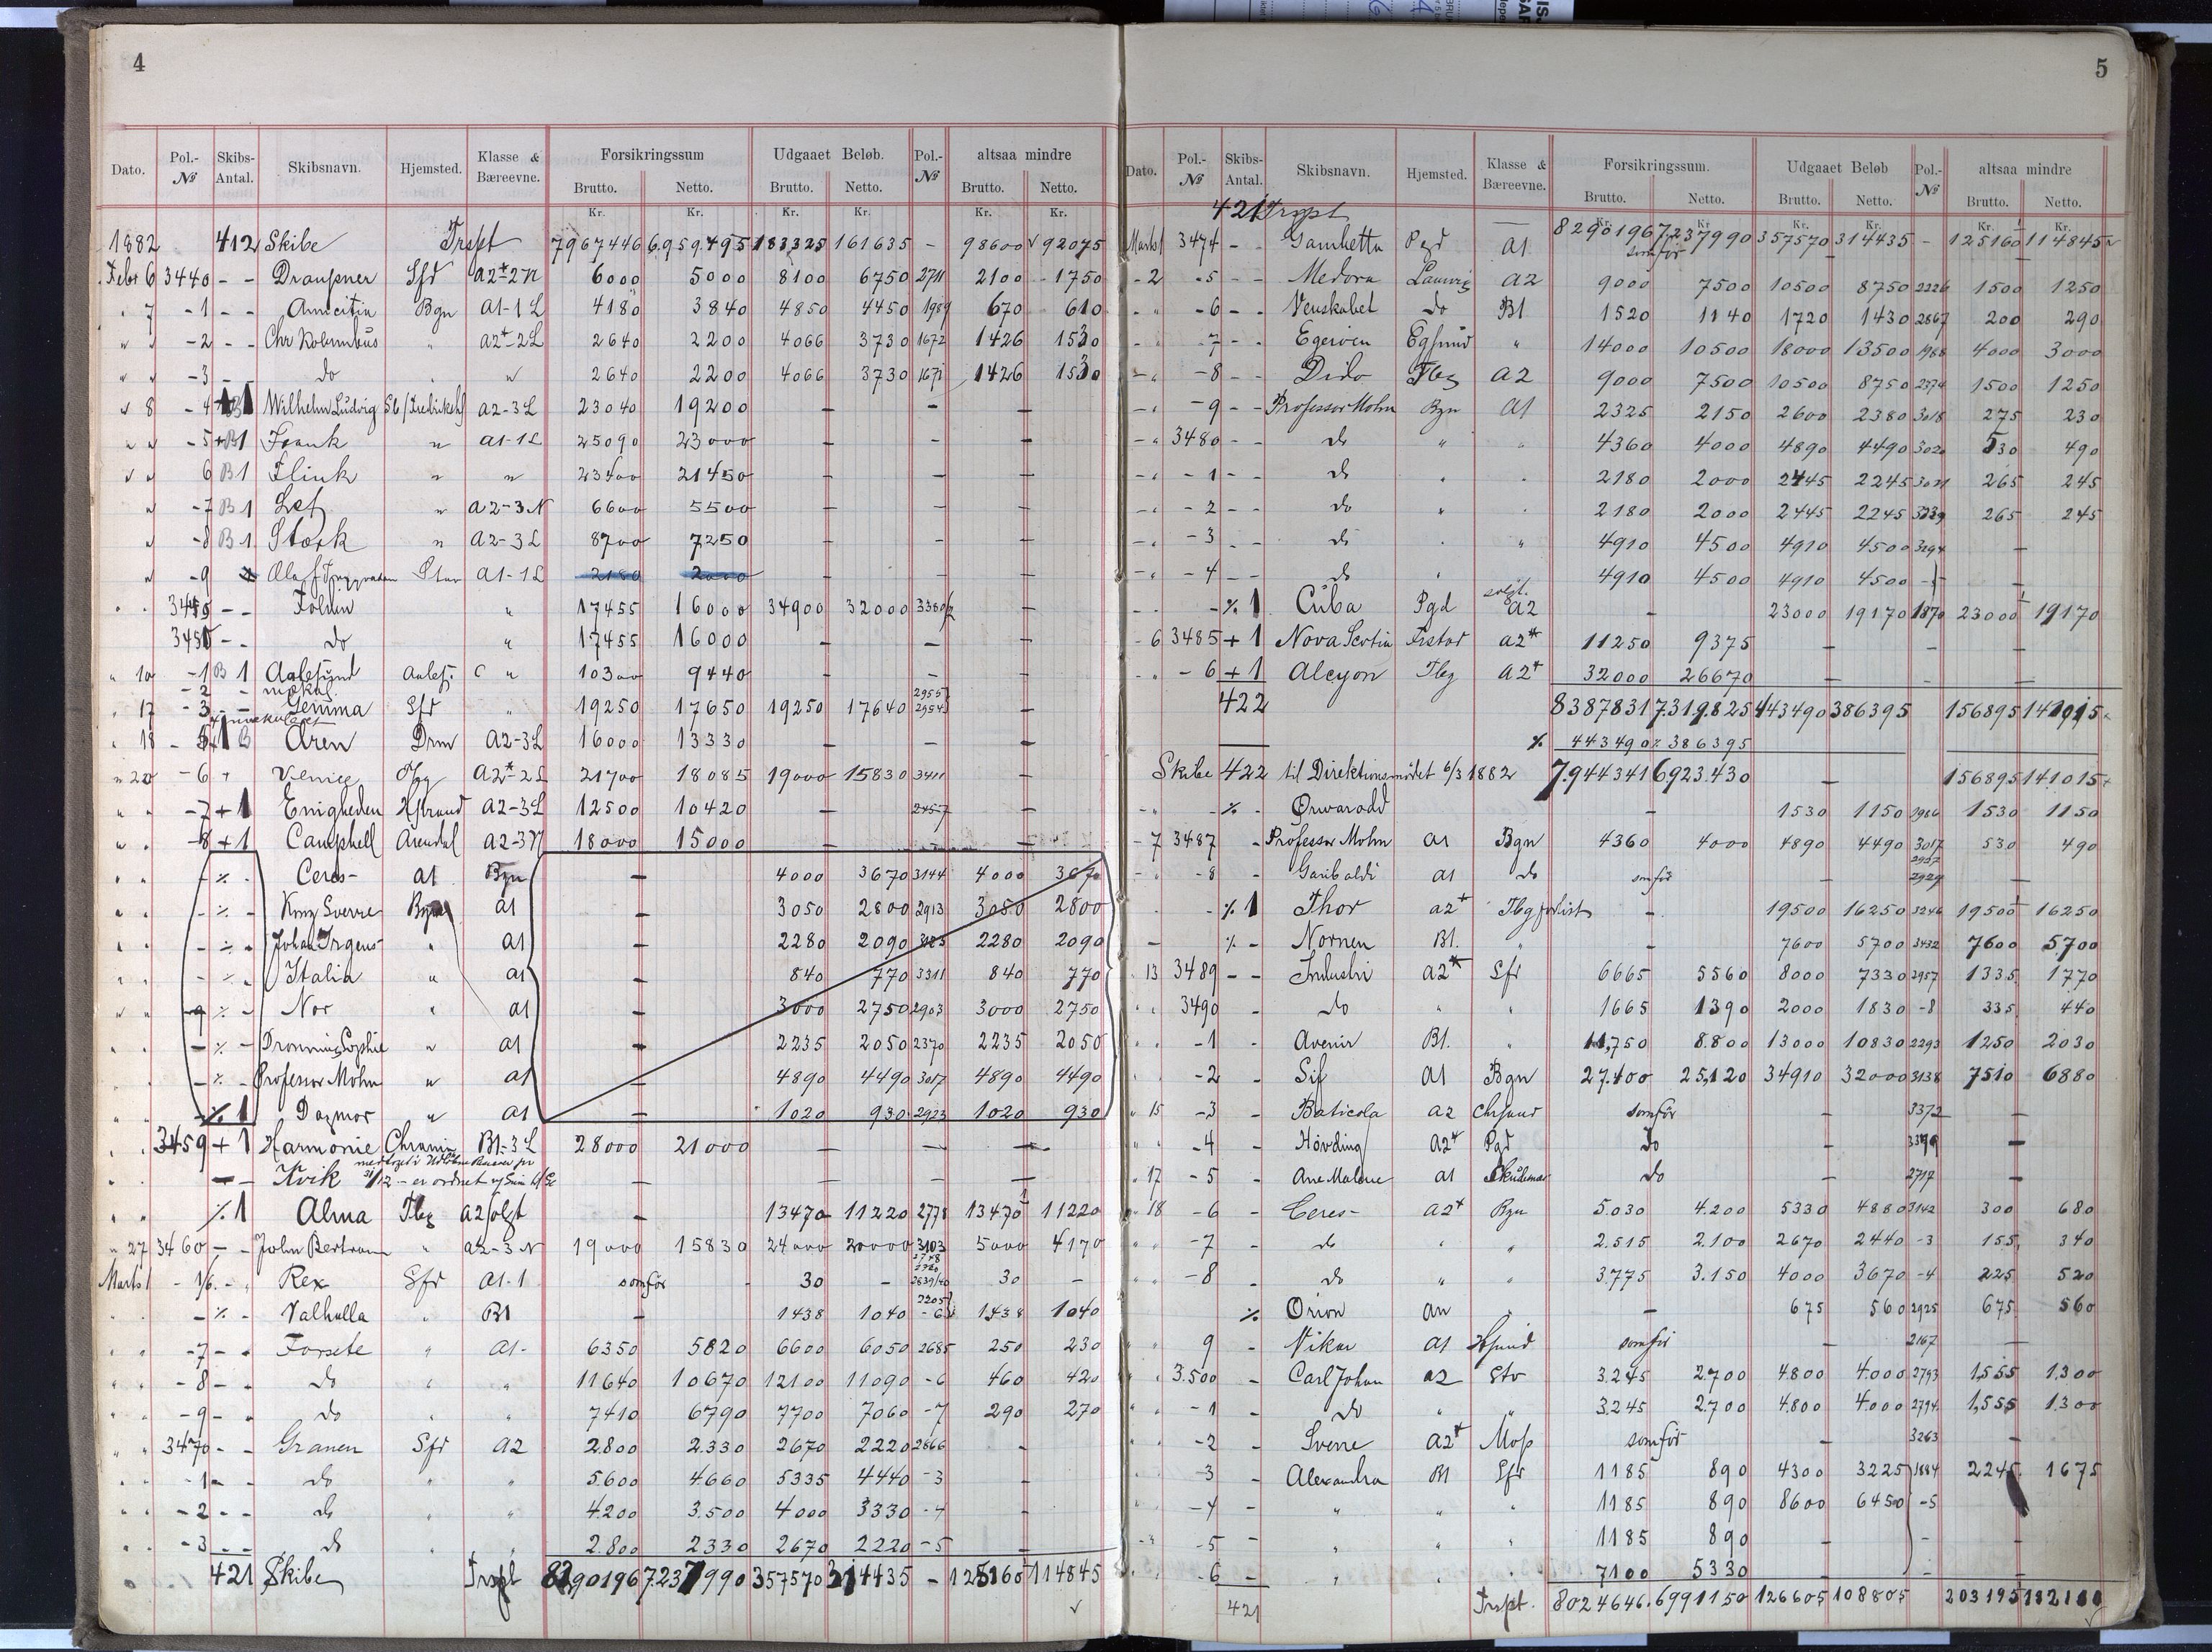 4
Dato. Pol.-№ Skibs-Antal. Skibsnavn. Hjemsted. Klasse & Bæreevne. Forsikringssum Brutto. Netto. Udgaaet Beløb. Brutto. Netto. Pol.-№ altsaa mindre Brutto. Netto.
Kr. Kr. Kr. Kr. Kr. Kr.
1882 412 Skibe Trspt 7967446 6.959.495 183325 161635 - 98600 92075
Febr 6 3440 - - Draupner Sfd A2*-2N 6000 5000 8100 6750 2711 2100 1750
" 7 -1 - - Amicitia Bgn A1-1L 4180 3840 4850 4450 1989 670 610
" " -2 - - Chr Kolumbus " A2*-2L 2640 2200 4066 3730 1672 1426 1530
" " -3 - - do " " 2640 2200 4066 3730 1671 1426 1530
" 8 -4 +B1 Wilhelm Ludvig A2-3L 23040 19200 - - -
" " -5 +B1 Frank " A1-1L 25090 23000 - - -
" " 6 B1 Flink " " 23400 21450 - - -
" -7 B1 Lef " A2-3N 6600 5500 - - -
" -8 B1 Stærk " A2-3L 8700 7250 - - -
" -9 Olaf Trygvason Stav A1-1L 2180 2000 - - -
" " - - Folven " 17455 16000 34900 32000 3380 -
- - do " 17455 16000 - - -
" 10 -1 B 1 Aalesund Aalesd. C " 10300 9440 - - -
-2 - makul.
" 17 -3 - - Gemma Sfd " 19250 17650 19250 17640 2955 2954 -
4 makuleret
" 18 -5 +1 B Aren Drm A2-3L 16000 13330 - - -
" 20 -6 + Venice Tbg A2*-2L 21700 18085 19000 15830 3411 -
" " -7 +1 Enigheden A2-3L 12500 10420 - 2457 -
" " -8 +1 Campbell Arendal A2-3N 18000 15000 - - -
" " - % - Ceres A1 Bgn - 4000 3670 3144 4000 3670
" " - % - Kong Sverre Bgn A1 - 3050 2800 2913 3050 2800
" " - % - Johan Irgens " A1 - 2280 2090 2280 2090
" " - % - Italia " A1 - 840 770 3311 840 770
" " -9 % - Nor " A1 - 3000 2750 2903 3000 2750
" " - % - Dronning Sophie " A1 - 2235 2050 2370 2235 2050
" - % - Professor Mohn " A1 - 4890 4490 3017 4890 4490
" " - % 1 Dagmar " A1 - 1020 930 2923 1020 930
" 3459 + 1 Harmonie B1-3L 28000 21000 - - -
- - Kvik 31/12 - er ordnet - - - -
" " % 1 Alma Tbg A2 solgt - 13470 11220 2778 13470 11220
" 27 3460 - - John Bertram " A2-3N 19000 15830 24000 20000 3103 5000 4170
Marts 1 -1/6 - " Rex Sfd A1-1 somför 30 - 2639/40 30 -
" " - % - Valhalla " B1 - 1438 1040 1438 1040
" " -7 - " Forsete " A1- 6350 5820 6600 6050 2685 250 230
" " -8 - " do " " 11640 10670 12100 11090 -6 460 420
" " -9 - " do " " 7410 6790 7700 7060 -7 290 270
" " 3470 - - Granen Sfd A2 2.800 2.330 2670 2220 2866 -
" " -1 - - do " " 5.600 4.660 5335 4440 -3 -
" " -2 - - do " " 4.200 3.500 4000 3330 -4 -
" " -3 - - do " " 2.800 2330 2670 2220 -5 -
421 Skibe Trspt 8290196 7237990 357570 314435 - 125160 114845
5
Dato. Pol.-№ Skibs-Antal. Skibsnavn. Hjemsted. Klasse & Bæreevne. Forsikringssum. Brutto. Netto. Udgaaet Beløb Brutto. Netto. Pol.-№ altsaa mindre Brutto. Netto.
Kr. Kr. Kr. Kr. Kr. Kr.
421 Trspt 8290196 7237990 357570 314435 - 125160 114845
Marts 1 3474 - - Gambetta Pgd A1 somför - -
- 2 -5 - - Medora Laurvig A2 9000 7500 10500 8750 2226 1500 1250
- " -6 - - Venskabet do B1 1520 1140 1720 1430 2867 200 290
- " -7 - - Egeröen Egsund " 14000 10500 18000 13500 1988 4000 3000
- " -8 - - Dido Tbg A2 9000 7500 10500 8750 2374 1500 1250
- " -9 - - Professor Mohn Bgn A1 2325 2150 2600 2380 3018 275 230
- " 3480 - - do " " 4360 4000 4890 4490 3020 530 490
- " -1 - - do " " 2180 2000 2445 2245 3021 265 245
- " -2 - - do " " 2180 2000 2445 2245 3239 265 245
- " -3 - - do " " 4910 4500 4910 4500 3294 -
- " -4 - - do " 4910 4500 4910 4500 - -
- " - % 1 Cuba Pgd solgt. A2 - 23000 19170 1870 23000 19170
- 6 3485 + 1 Nova Scotia A2* 11250 9375 - - -
- " -6 + 1 Alcyon Tbg A2* 32000 26670 - - -
422 8387831 7.319.825 443490 386395 156895 141015
% 443490 % 386395
Skibe 422 til Direktionsmödet 6/3 1882 7.944341 6923.430 - 156895 141015
- " - % - Ørvarodd - 1530 1150 1986 1530 1150
- 7 3487 - Professor Mohn A1 Bgn 4360 4000 4890 4490 3017 530 490
- " -8 - Garibaldi A1 do somför - 2927 2929 -
- % 1 Thor A2* Tbg forlist - 19500 16250 3246 19500 16250
- % - Nornen B1. " - 7600 5700 3432 7600 5.700
" 13 3489 - - Industri A2* Sfd 6665 5560 8000 7330 2957 1335 1770
" " 3490 - do " " 1665 1390 2000 1830 -8 335 440
" " -1 - Avenir B1. " 11,750 8.800 13000 10830 2293 1250 2030
" -2 - Sif A1 Bgn 27.400 25,120 34910 32000 3138 7510 6880
" 15 -3 - Baticola A2 Chrsund somför - 3372 -
" " -4 - Hövding A2* Pgd do - -
" 17 -5 - Ane Malene A1 do - 2717 -
" 18 -6 - Ceres A2* Bgn 5.030 4.200 5330 4880 3142 300 680
" " -7 - do " " 2.515 2.100 2670 2440 -3 155 340
" " -8 - do " " 3.775 3.150 4000 3670 -4 225 520
% Orion " - 675 560 2925 675 560
" " 9 - Vikar A1 somför - 2167 -
" " 3.500 - Carl Johan A2 Stv 3.245 2.700 4.800 4.000 2793 1,555 1.300
" " -1 - do " " 3.245 2.700 4.800 4.000 2794 1,555 1.300
" -2 - Sverre A2* Moss somför - 3263 -
" -3 - Alexandra B1 Sfd 1185 890 4300 3225 1884 2245 1675
" -4 - " " " 1185 890 8600 6450 -5
- " -5 - " " " 1185 890 - - -
" -6 - " " " 7100 5330 - - -
421 Trspt. 8024646 6991150 126605 108805 203195 182180